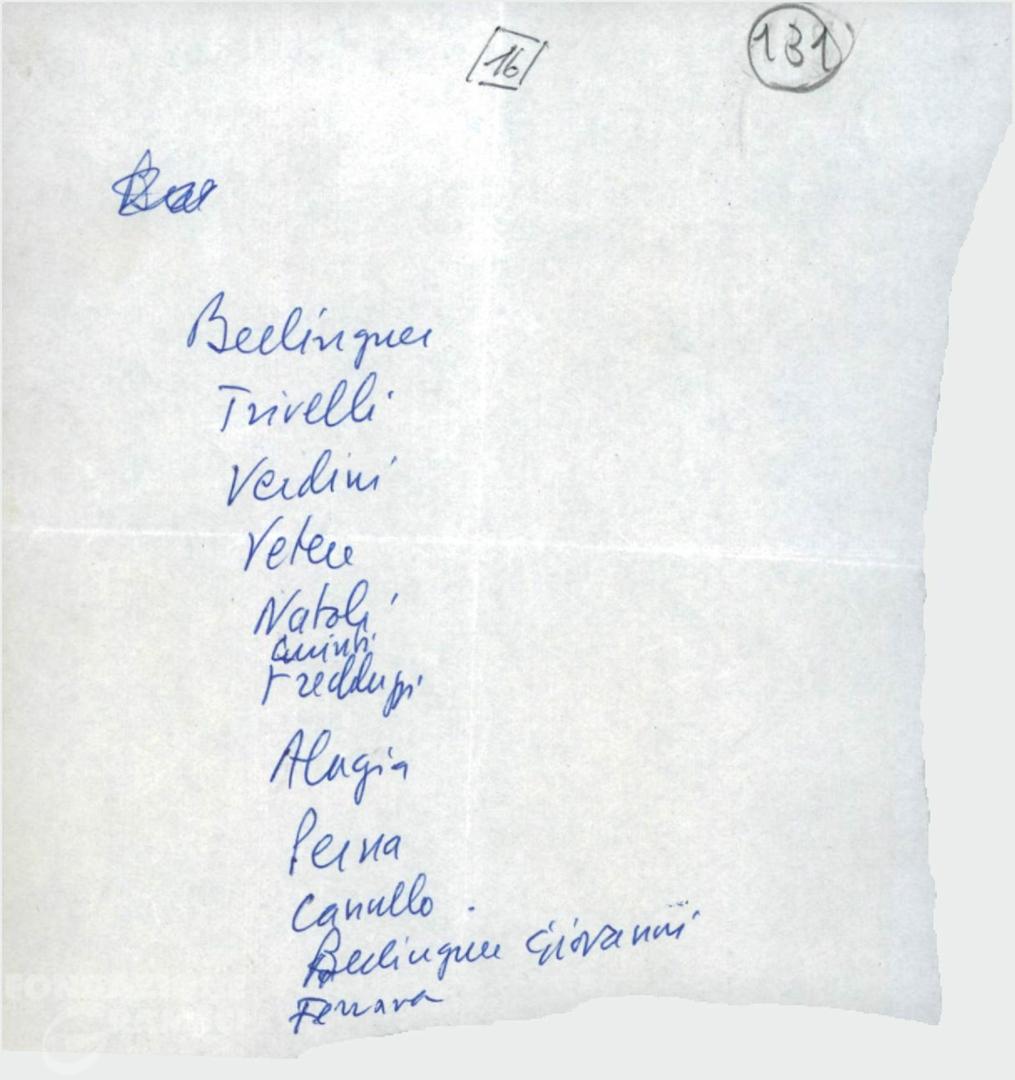 16
131
Berlinguer
Trivelli
Verdini
Vetere
Natoli
Freddupi
Alugia
Perna
Canullo.
Berlinguer Giovanni
Ferrara